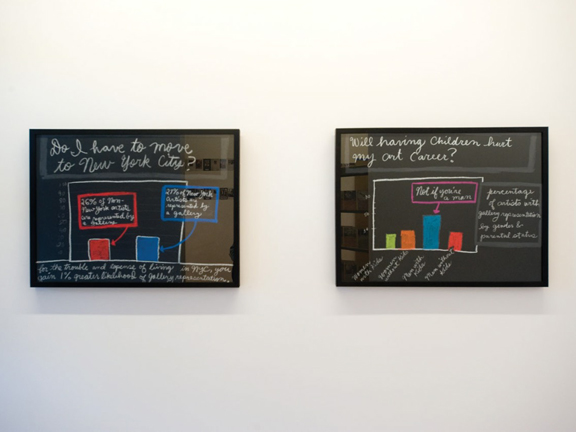 Do I have to move
to New York City?
26% of Non-
New York artists
are represented by
a gallery
27% of New York
artists are
represented by
a gallery
for the trouble and expense of living in NYC, you
gain 1% greater likelihood of gallery representation.
Will having children hurt
my art career?
Not if you're
a man
percentage
of artists with
gallery representation
by gender &
parental status
Women
with kids
Women
without kids
Men with
kids
Men without
kids